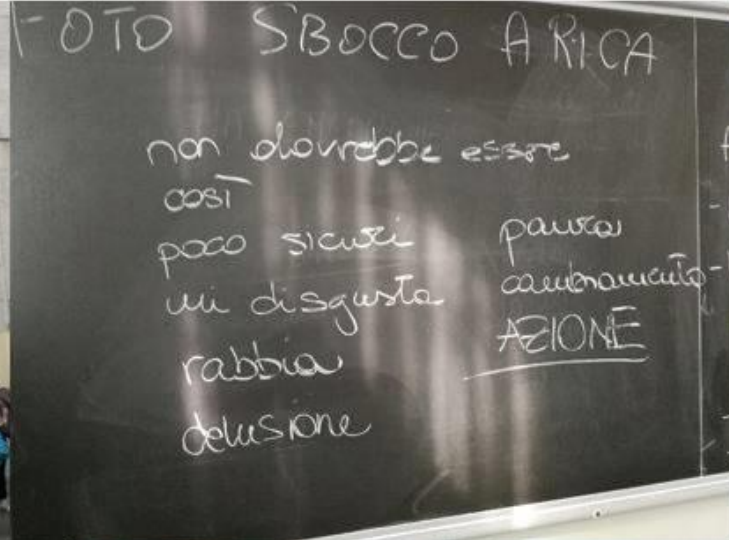 FOTO SBOCCO A RICA
non dovrebbe essere
così
poco sicuri
mi disgusta
rabbia
delusione
paura
cambiamento
AZIONE